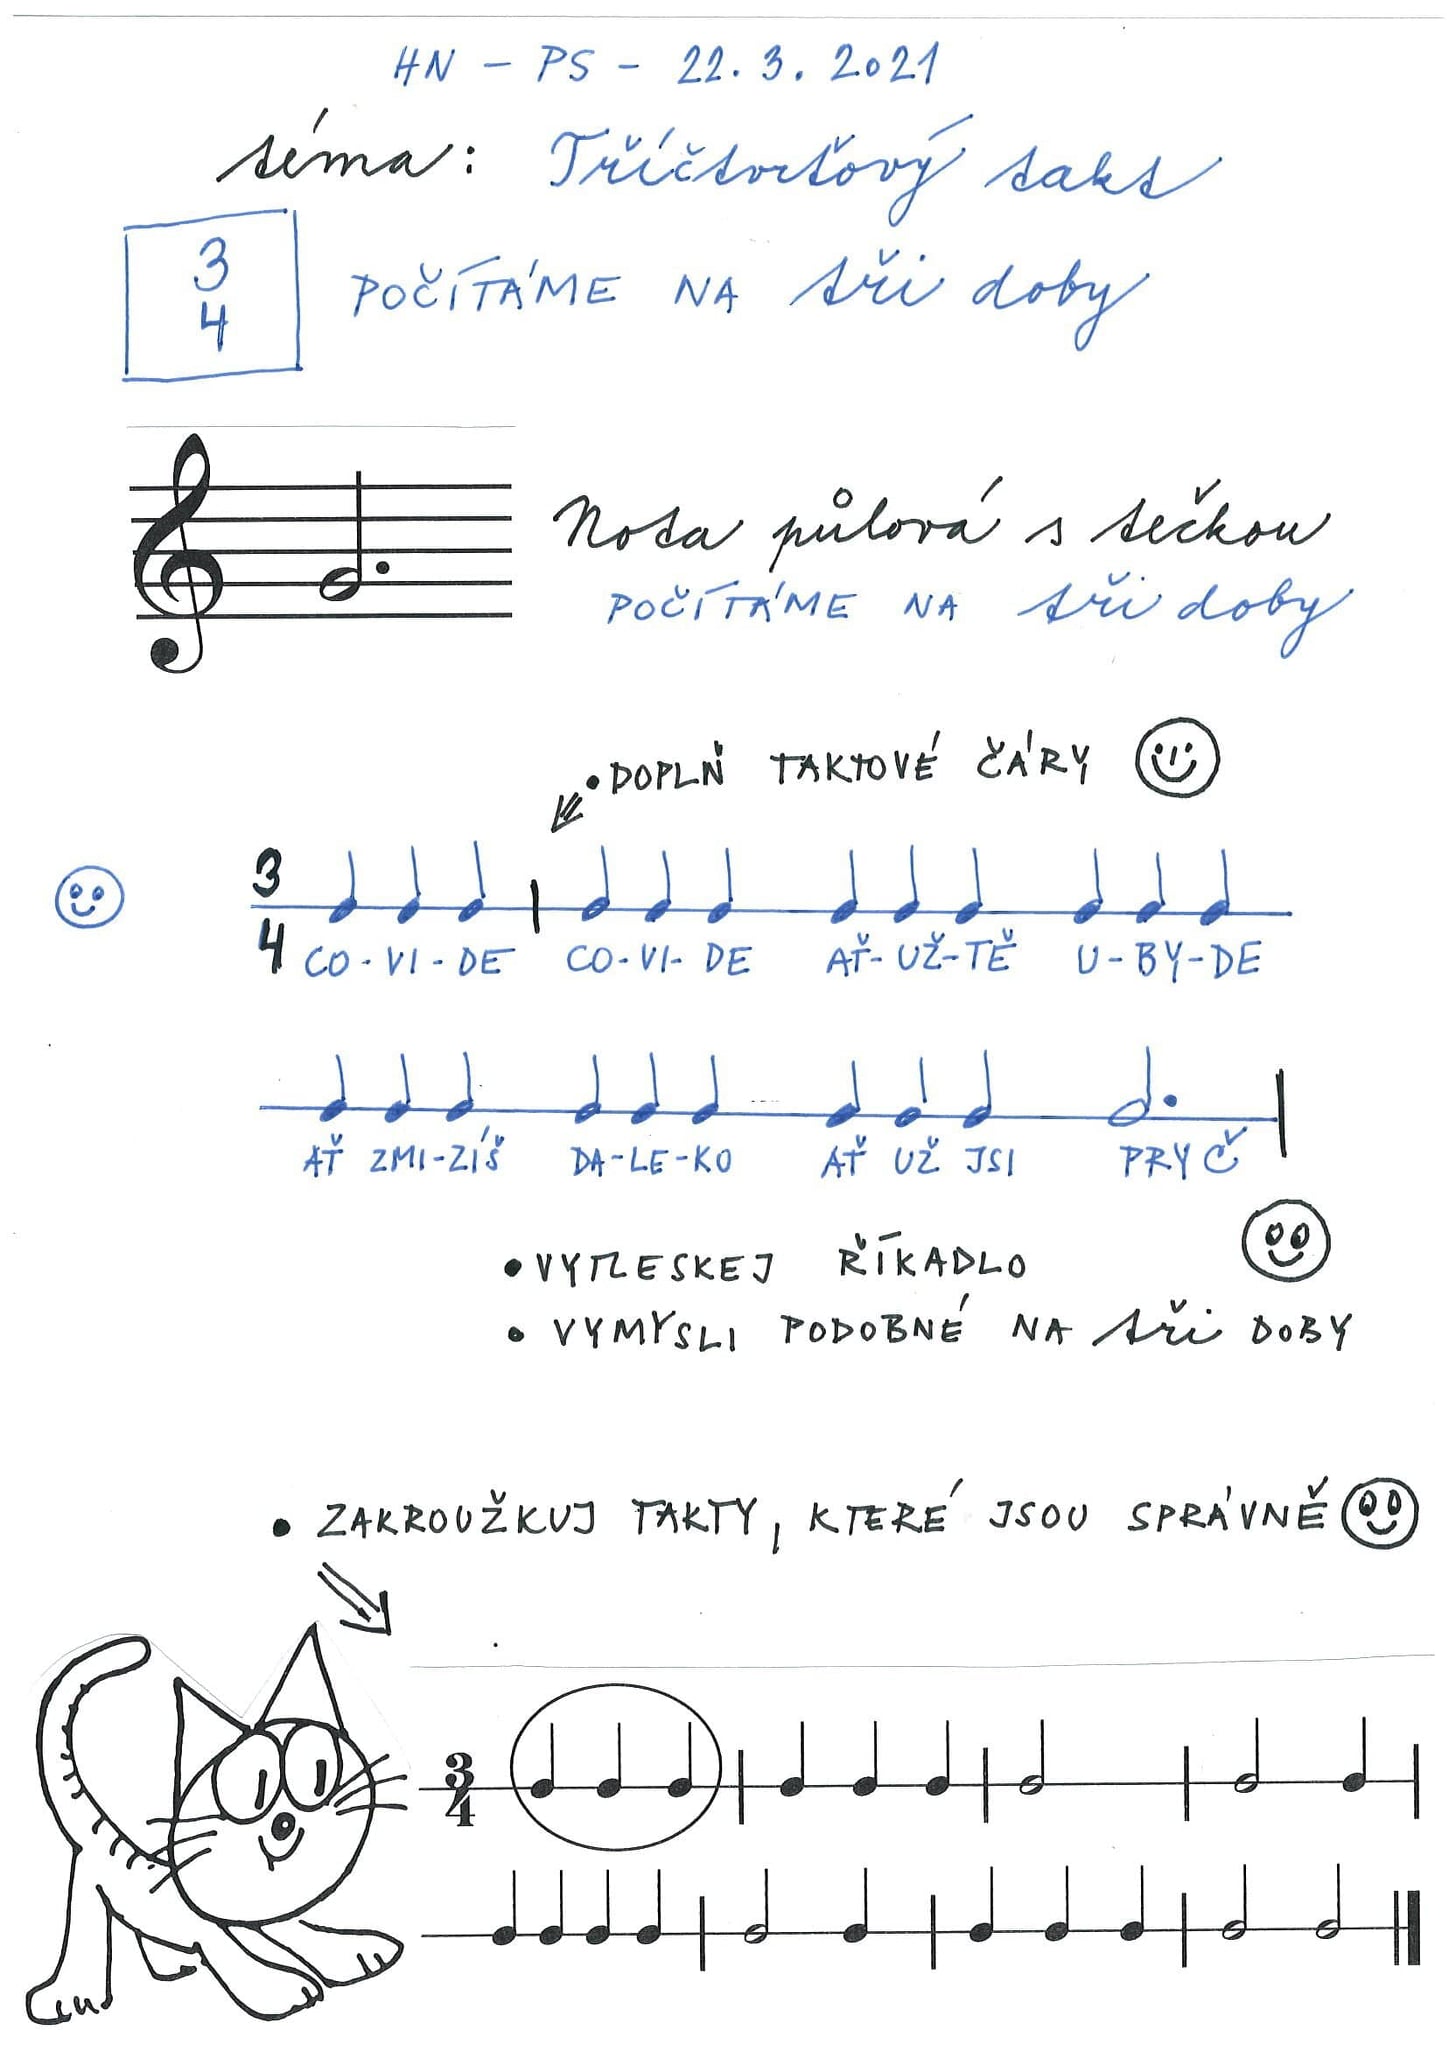 HN - PS - 22. 3. 2021
téma: Tříčtvrťový takt
3
4
POČÍTÁME NA tři doby
Nota půlová s tečkou
POČÍTÁME NA tři doby
• DOPLŇ TAKTOVÉ ČÁRY
3
4
CO-VI-DE CO-VI-DE AŤ-UŽ-TĚ U-BY-DE
AŤ ZMI-ZÍŠ DA-LE-KO AŤ UŽ JSI PRYČ
• VYTLESKEJ ŘÍKADLO
• VYMYSLI PODOBNÉ NA tři DOBY
• ZAKROUŽKUJ TAKTY, KTERÉ JSOU SPRÁVNĚ
3
4